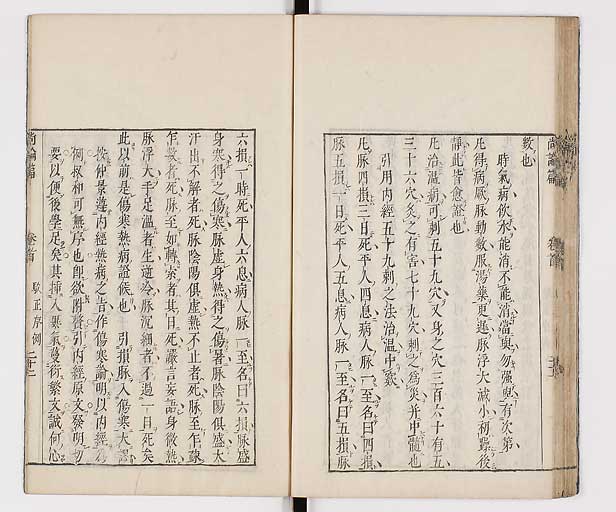 尚論篇 卷首
數也
時氣病飲水能消不能消當與勿強與有次第
凡得病厥脉動數服湯藥更遲脉浮大減小初躁後
靜此皆愈證也
凡治溫病可刺五十九穴又身之穴三百六十有五
三十六穴灸之有害七十九穴刺之為災并中髓也
引用內經五十九刺之法治溫中竅
凡脉四損三日死平人四息病人脉一至名曰四損
脉五損一日死平人五息病人脉一至名曰五損脉
六損一時死平人六息病人脉一至名曰六損脉盛
身寒得之傷寒脉虛身熱得之傷暑脉陰陽俱盛大
汗出不解者死脉陰陽俱虛熱不止者死脉至乍疎
乍數者死脉至如轉索者其日死譫言妄語身微熱
脉浮大手足溫者生逆冷脉沉細者不過一日死矣
此以前是傷寒熱病證候也 引損脉入傷寒大謬
按仲景遵內經熱病之旨作傷寒論明以內經為
例叔和可無序也即欲附贅引內經原文發明勿
要以便後學足矣其插入異氣蔓衍繁文誠何心
尚論篇 卷首 駁正序例 二十二